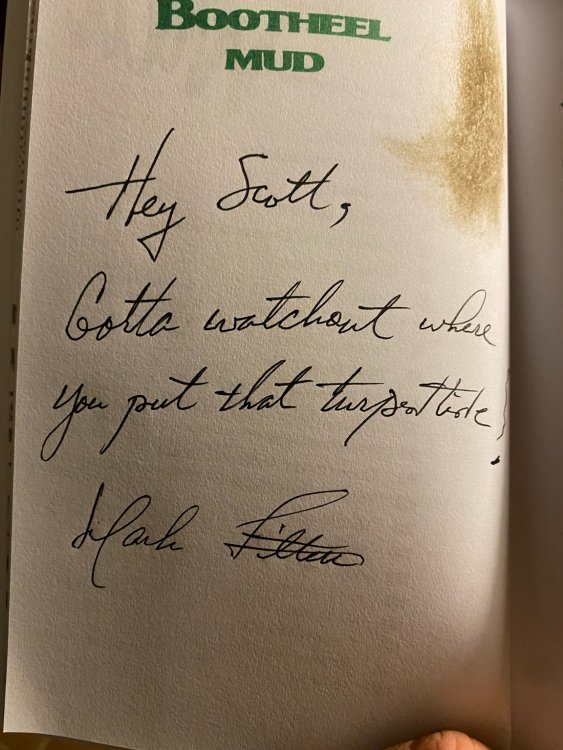 BOOTHEEL
MUD
Hey Scott,
Gotta watchout where
you put that turpentine!
Mark Fitten